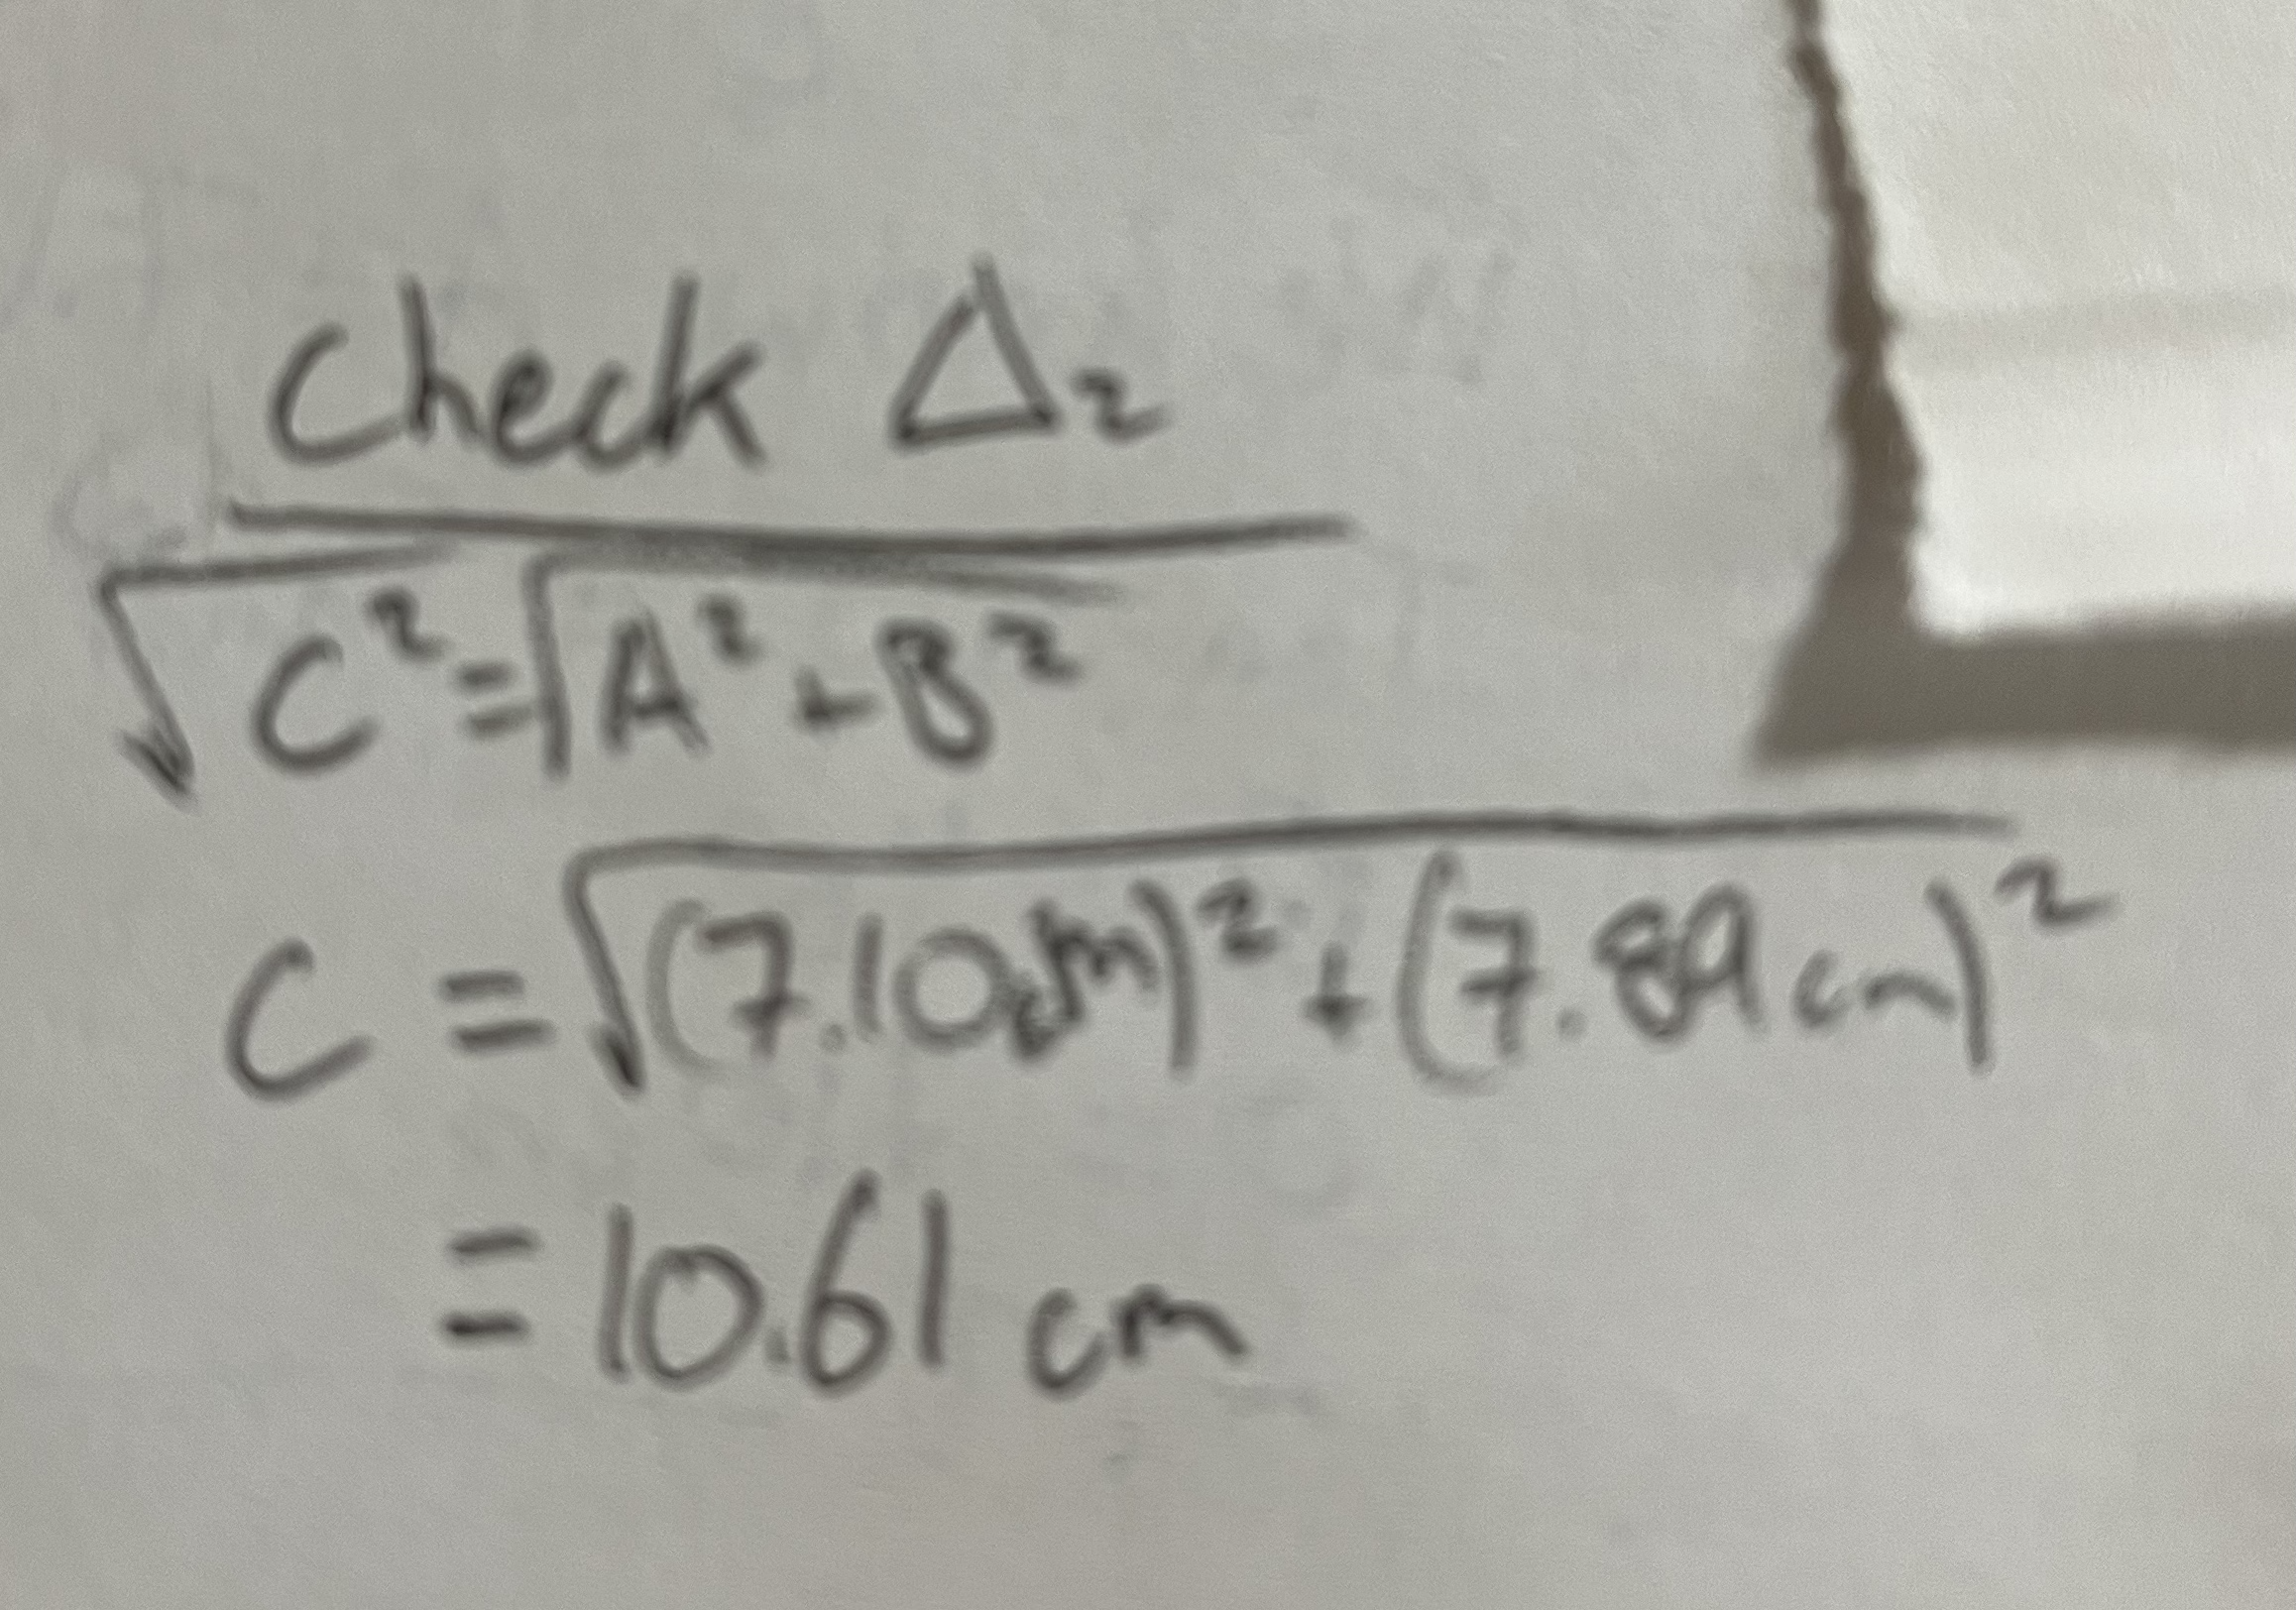 Check Δ₂
√C² = √A² + B²
C = √(7.10cm)² + (7.89cm)²
= 10.61 cm